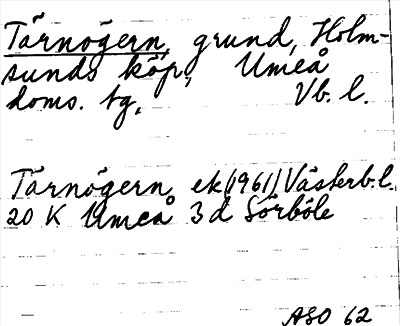 Tärnögern, grund, Holm-
sunds köp, Umeå
doms. tg, Vb. l.
Tärnögern ek (1961) Västerb. l.
20 K Umeå 3 d Sörböle
ASO 62